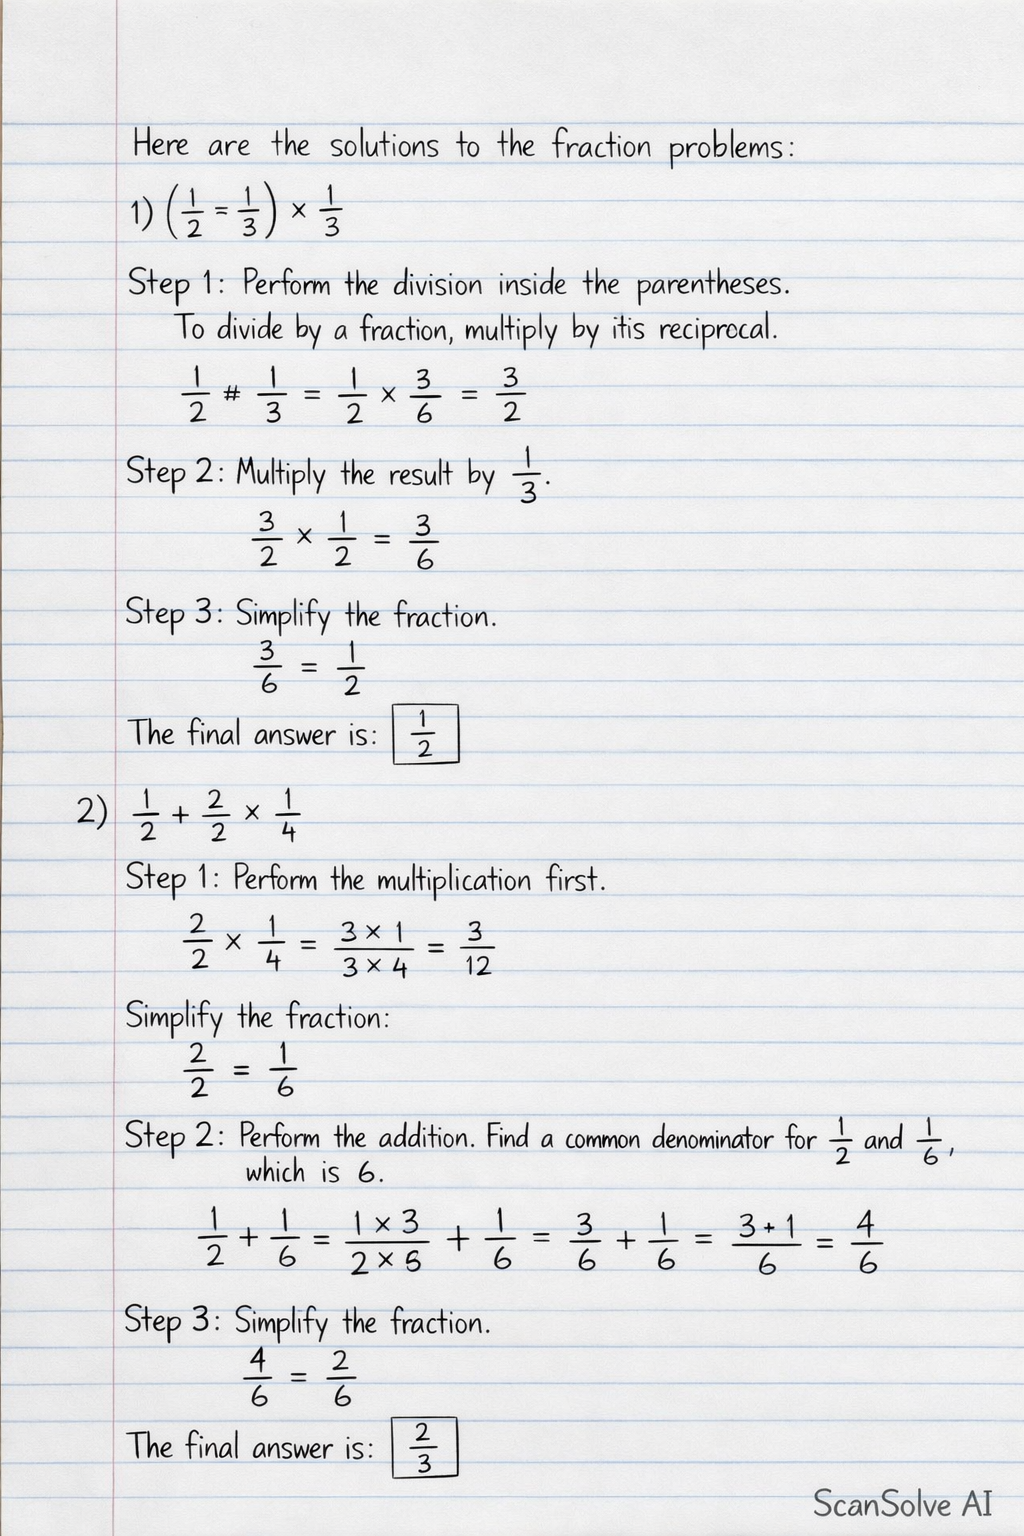 Here are the solutions to the fraction problems:
1) (1/2 = 1/3) × 1/3
Step 1: Perform the division inside the parentheses.
To divide by a fraction, multiply by itis reciprocal.
1/2 # 1/3 = 1/2 × 3/6 = 3/2
Step 2: Multiply the result by 1/3.
3/2 × 1/2 = 3/6
Step 3: Simplify the fraction.
3/6 = 1/2
The final answer is: 1/2
2) 1/2 + 2/2 × 1/4
Step 1: Perform the multiplication first.
2/2 × 1/4 = (3 × 1)/(3 × 4) = 3/12
Simplify the fraction:
2/2 = 1/6
Step 2: Perform the addition. Find a common denominator for 1/2 and 1/6,
which is 6.
1/2 + 1/6 = (1 × 3)/(2 × 6) + 1/6 = 3/6 + 1/6 = (3+1)/6 = 4/6
Step 3: Simplify the fraction.
4/6 = 2/6
The final answer is: 2/3
ScanSolve AI